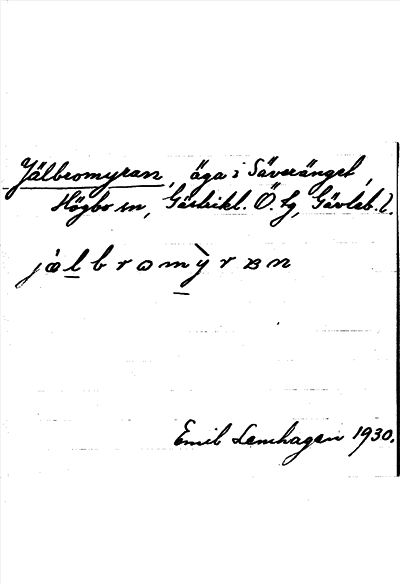 Jälbromyran, äga i Säveränget,
Högbo sn, Gästrikl. Ö. tg, Gävleb. l.
jälbromỳran
Emil Lemhagen 1930.